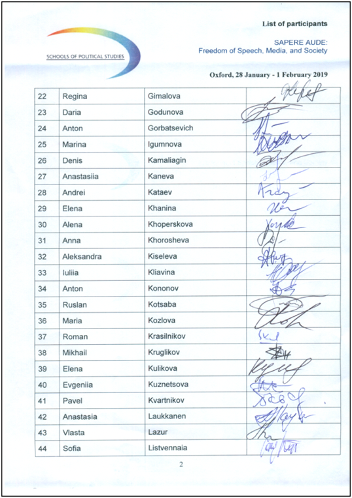 List of participants
SCHOOLS OF POLITICAL STUDIES
SAPERE AUDE:
Freedom of Speech, Media, and Society
Oxford, 28 January - 1 February 2019
22 Regina Gimalova
23 Daria Godunova
24 Anton Gorbatsevich
25 Marina Igumnova
26 Denis Kamaliagin
27 Anastasiia Kaneva
28 Andrei Kataev
29 Elena Khanina
30 Alena Khoperskova
31 Anna Khorosheva
32 Aleksandra Kiseleva
33 Iuliia Kliavina
34 Anton Kononov
35 Ruslan Kotsaba
36 Maria Kozlova
37 Roman Krasilnikov
38 Mikhail Kruglikov
39 Elena Kulikova
40 Evgeniia Kuznetsova
41 Pavel Kvartnikov
42 Anastasia Laukkanen
43 Vlasta Lazur
44 Sofia Listvennaia
2